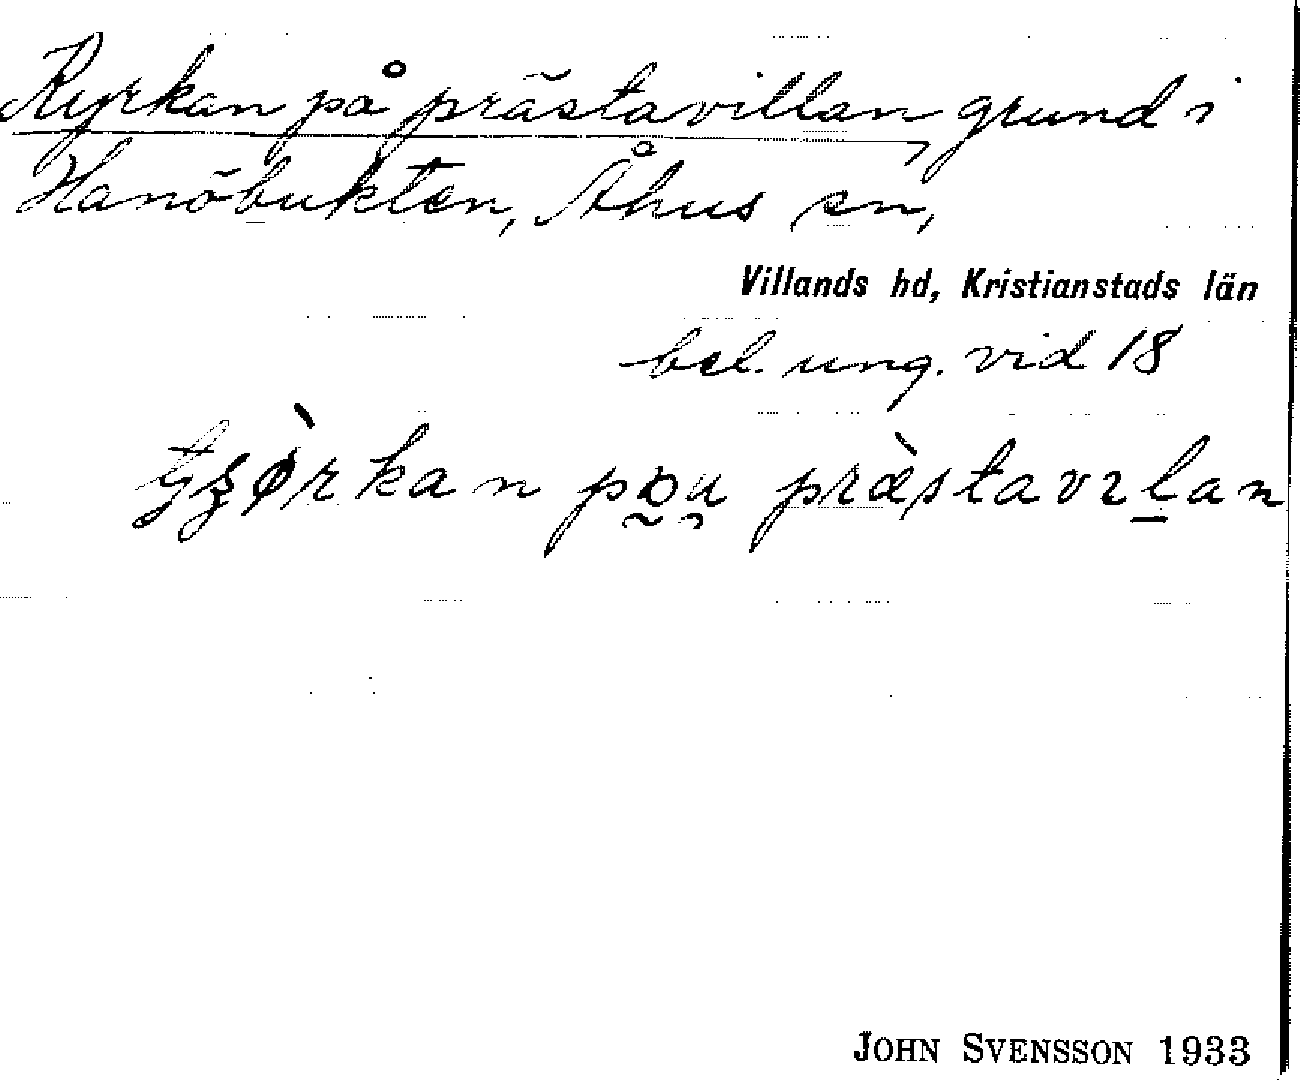 Kyrkan på prästavillan, grund i
Hanöbukten, Åhus sn,
Villands hd, Kristianstads län
bel. ung. vid 18
præstavɪlan
JOHN SVENSSON 1933